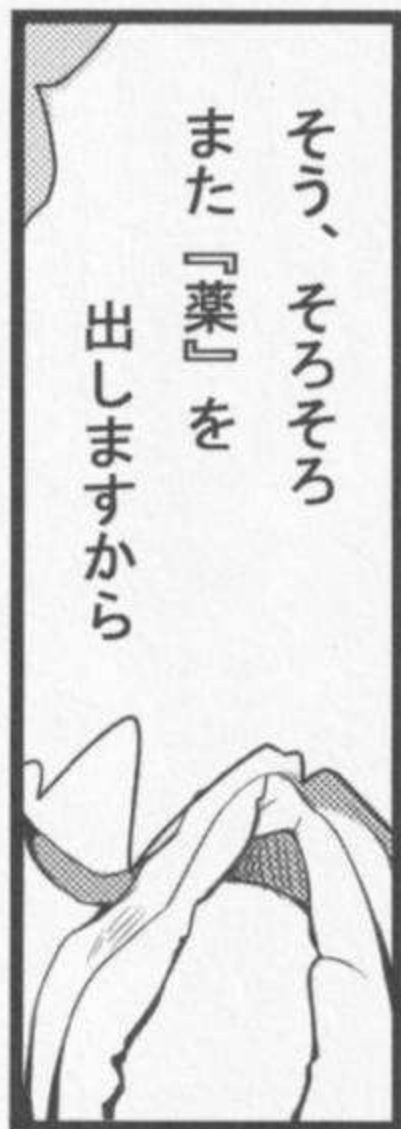 そう、そろそろ
また『薬』を
出しますから